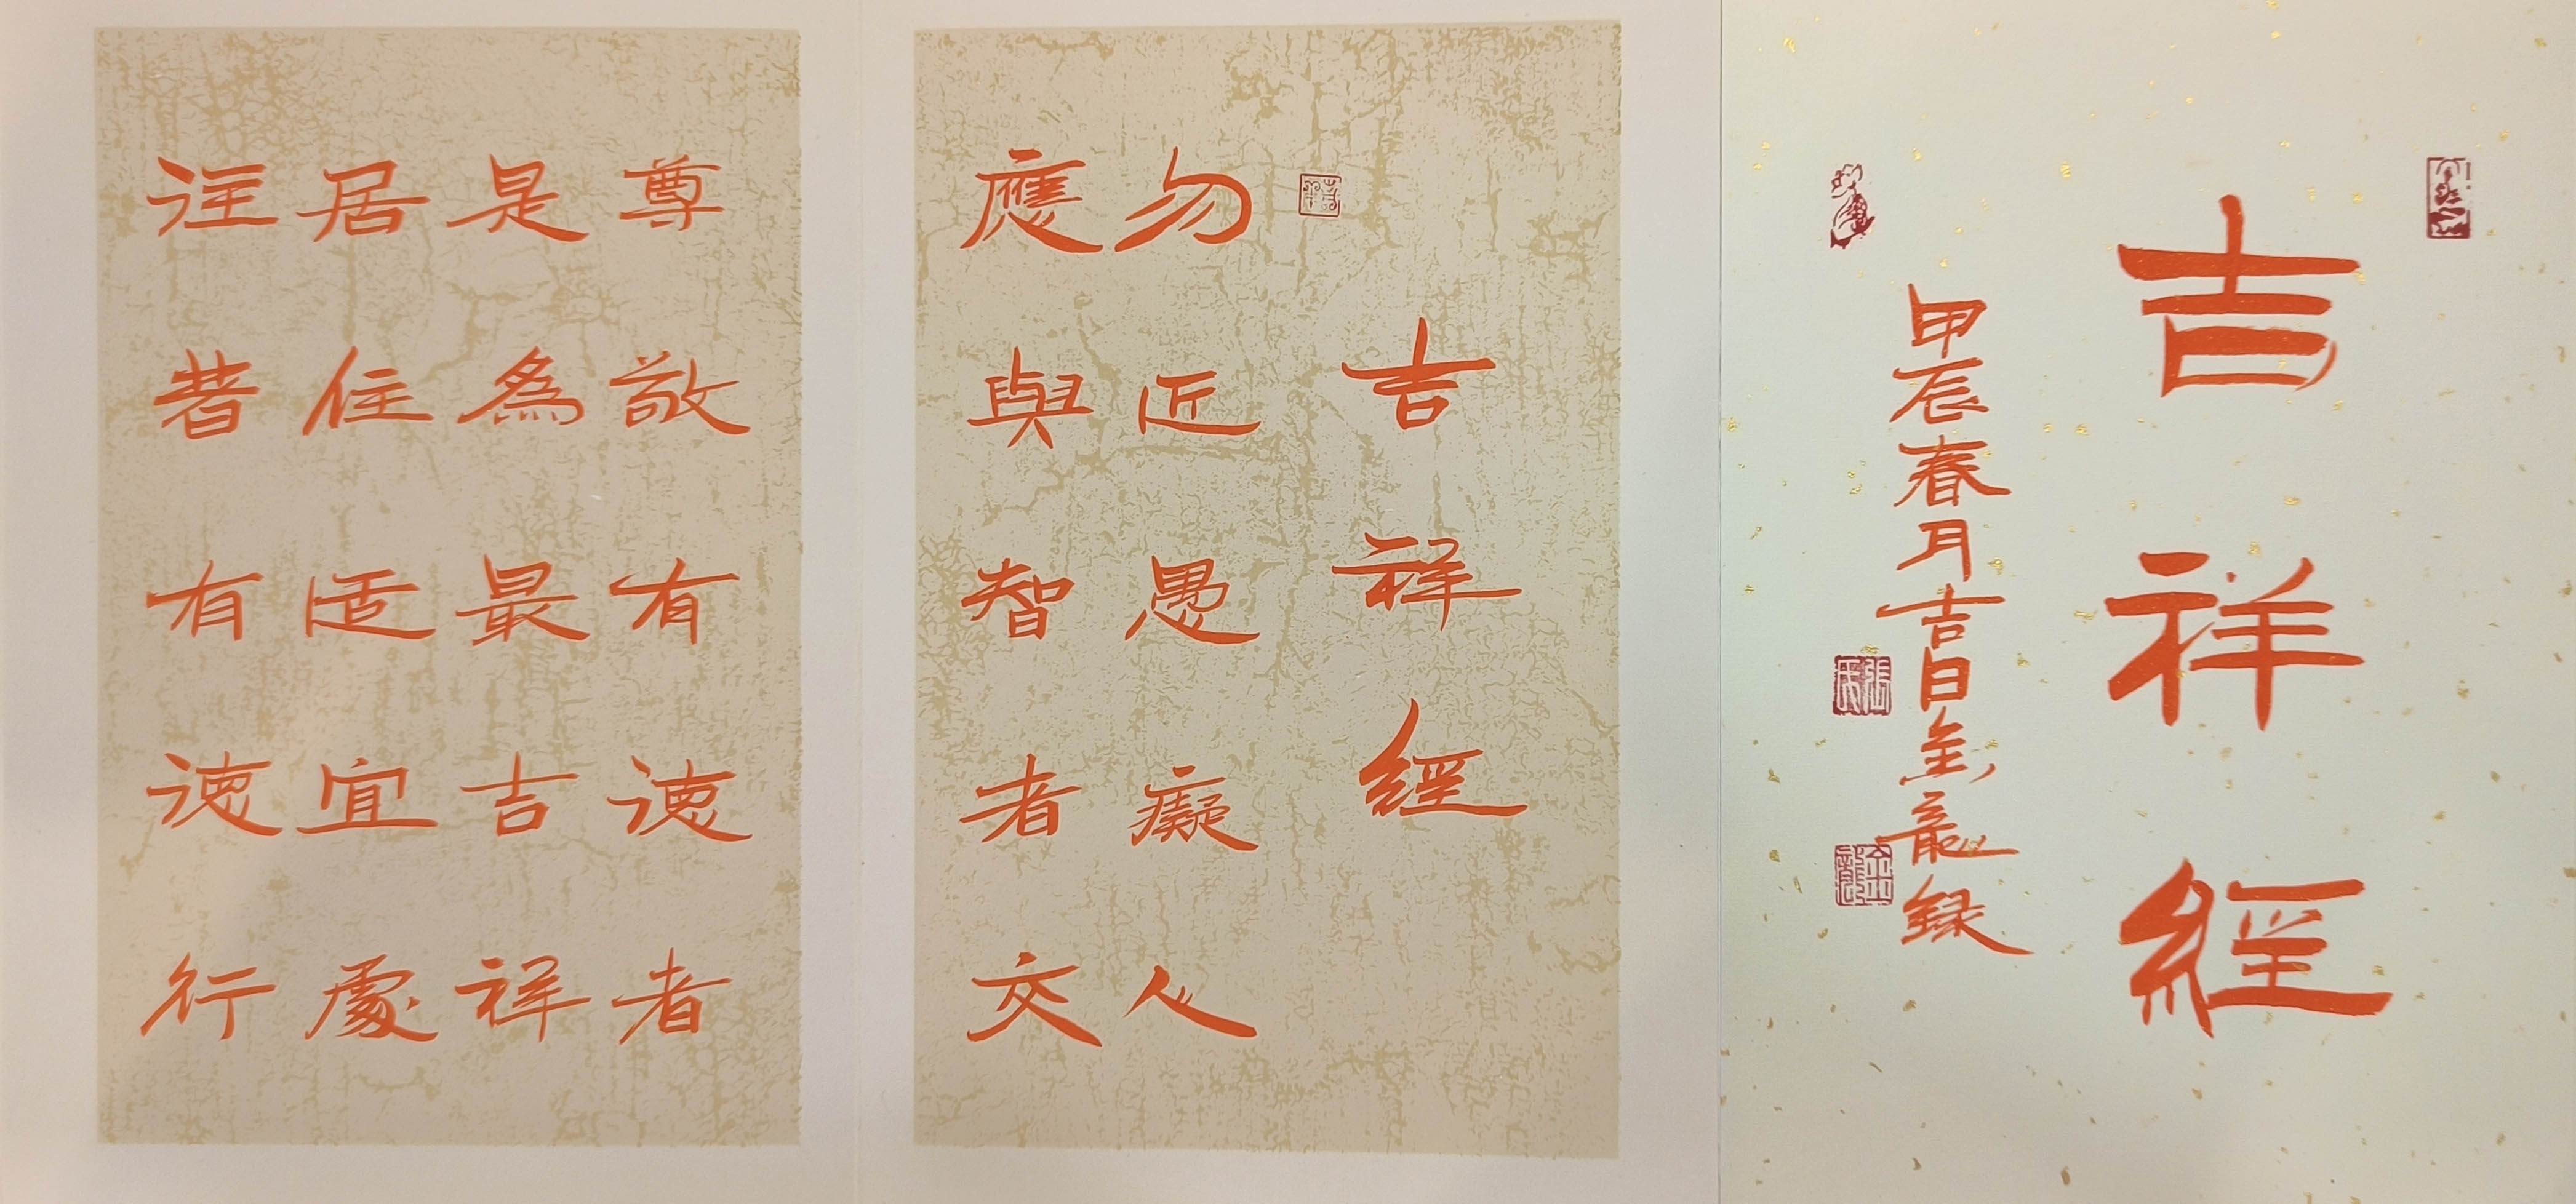 吉祥經
甲辰春月吉日金龍錄
張氏
金龍
吉祥經
勿近愚癡人
應與智者交
尊敬有德者
是為最吉祥
居住适宜處
往昔有德行